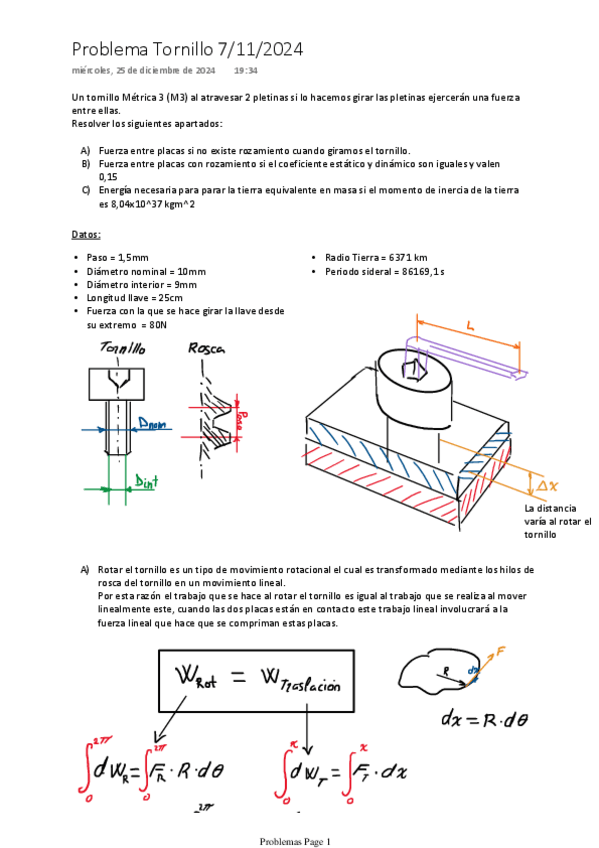 Problema Tornillo 7/11/2024
miércoles, 25 de diciembre de 2024 19:34
Un tornillo Métrica 3 (M3) al atravesar 2 pletinas si lo hacemos girar las pletinas ejercerán una fuerza
entre ellas.
Resolver los siguientes apartados:
A) Fuerza entre placas si no existe rozamiento cuando giramos el tornillo.
B) Fuerza entre placas con rozamiento si el coeficiente estático y dinámico son iguales y valen
0,15
C) Energía necesaria para parar la tierra equivalente en masa si el momento de inercia de la tierra
es 8,04x10^37 kgm^2
Datos:
• Paso = 1,5mm
• Diámetro nominal = 10mm
• Diámetro interior = 9mm
• Longitud llave = 25cm
• Fuerza con la que se hace girar la llave desde
su extremo = 80N
• Radio Tierra = 6371 km
• Periodo sideral = 86169,1 s
Tornillo
Rosca
L
Dnom
Paso
Dint
Δx
La distancia
varía al rotar el
tornillo
A) Rotar el tornillo es un tipo de movimiento rotacional el cual es transformado mediante los hilos de
rosca del tornillo en un movimiento lineal.
Por esta razón el trabajo que se hace al rotar el tornillo es igual al trabajo que se realiza al mover
linealmente este, cuando las dos placas están en contacto este trabajo lineal involucrará a la
fuerza lineal que hace que se compriman estas placas.
W_Rot = W_Traslación
R dx F
dx = R·dθ
∫₀^2π dW_R = ∫₀^2π F_R · R · dθ
∫₀^x dW_T = ∫₀^x F_T · dx
2π
Problemas Page 1